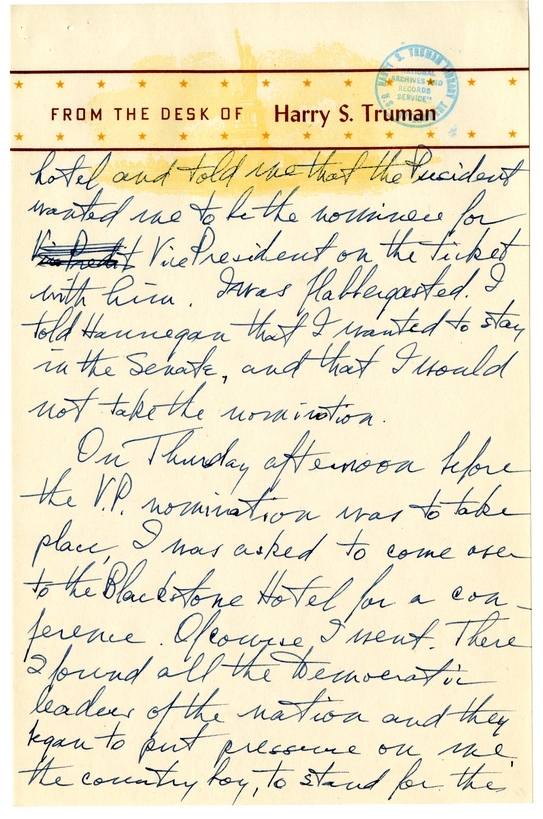 FROM THE DESK OF Harry S. Truman
HARRY S. TRUMAN LIBRARY
"NATIONAL
ARCHIVES AND
RECORDS
SERVICE"
hotel and told me that the President
wanted me to be the nominee for
Vice President on the ticket
with him. I was flabbergasted. I
told Hannegan that I wanted to stay
in the Senate, and that I would
not take the nomination.
On Thursday afternoon before
the V.P. nomination was to take
place, I was asked to come over
to the Blackstone Hotel for a con-
ference. Of course I went. There
I found all the Democratic
leaders of the nation and they
began to put pressure on me,
the country boy, to stand for the